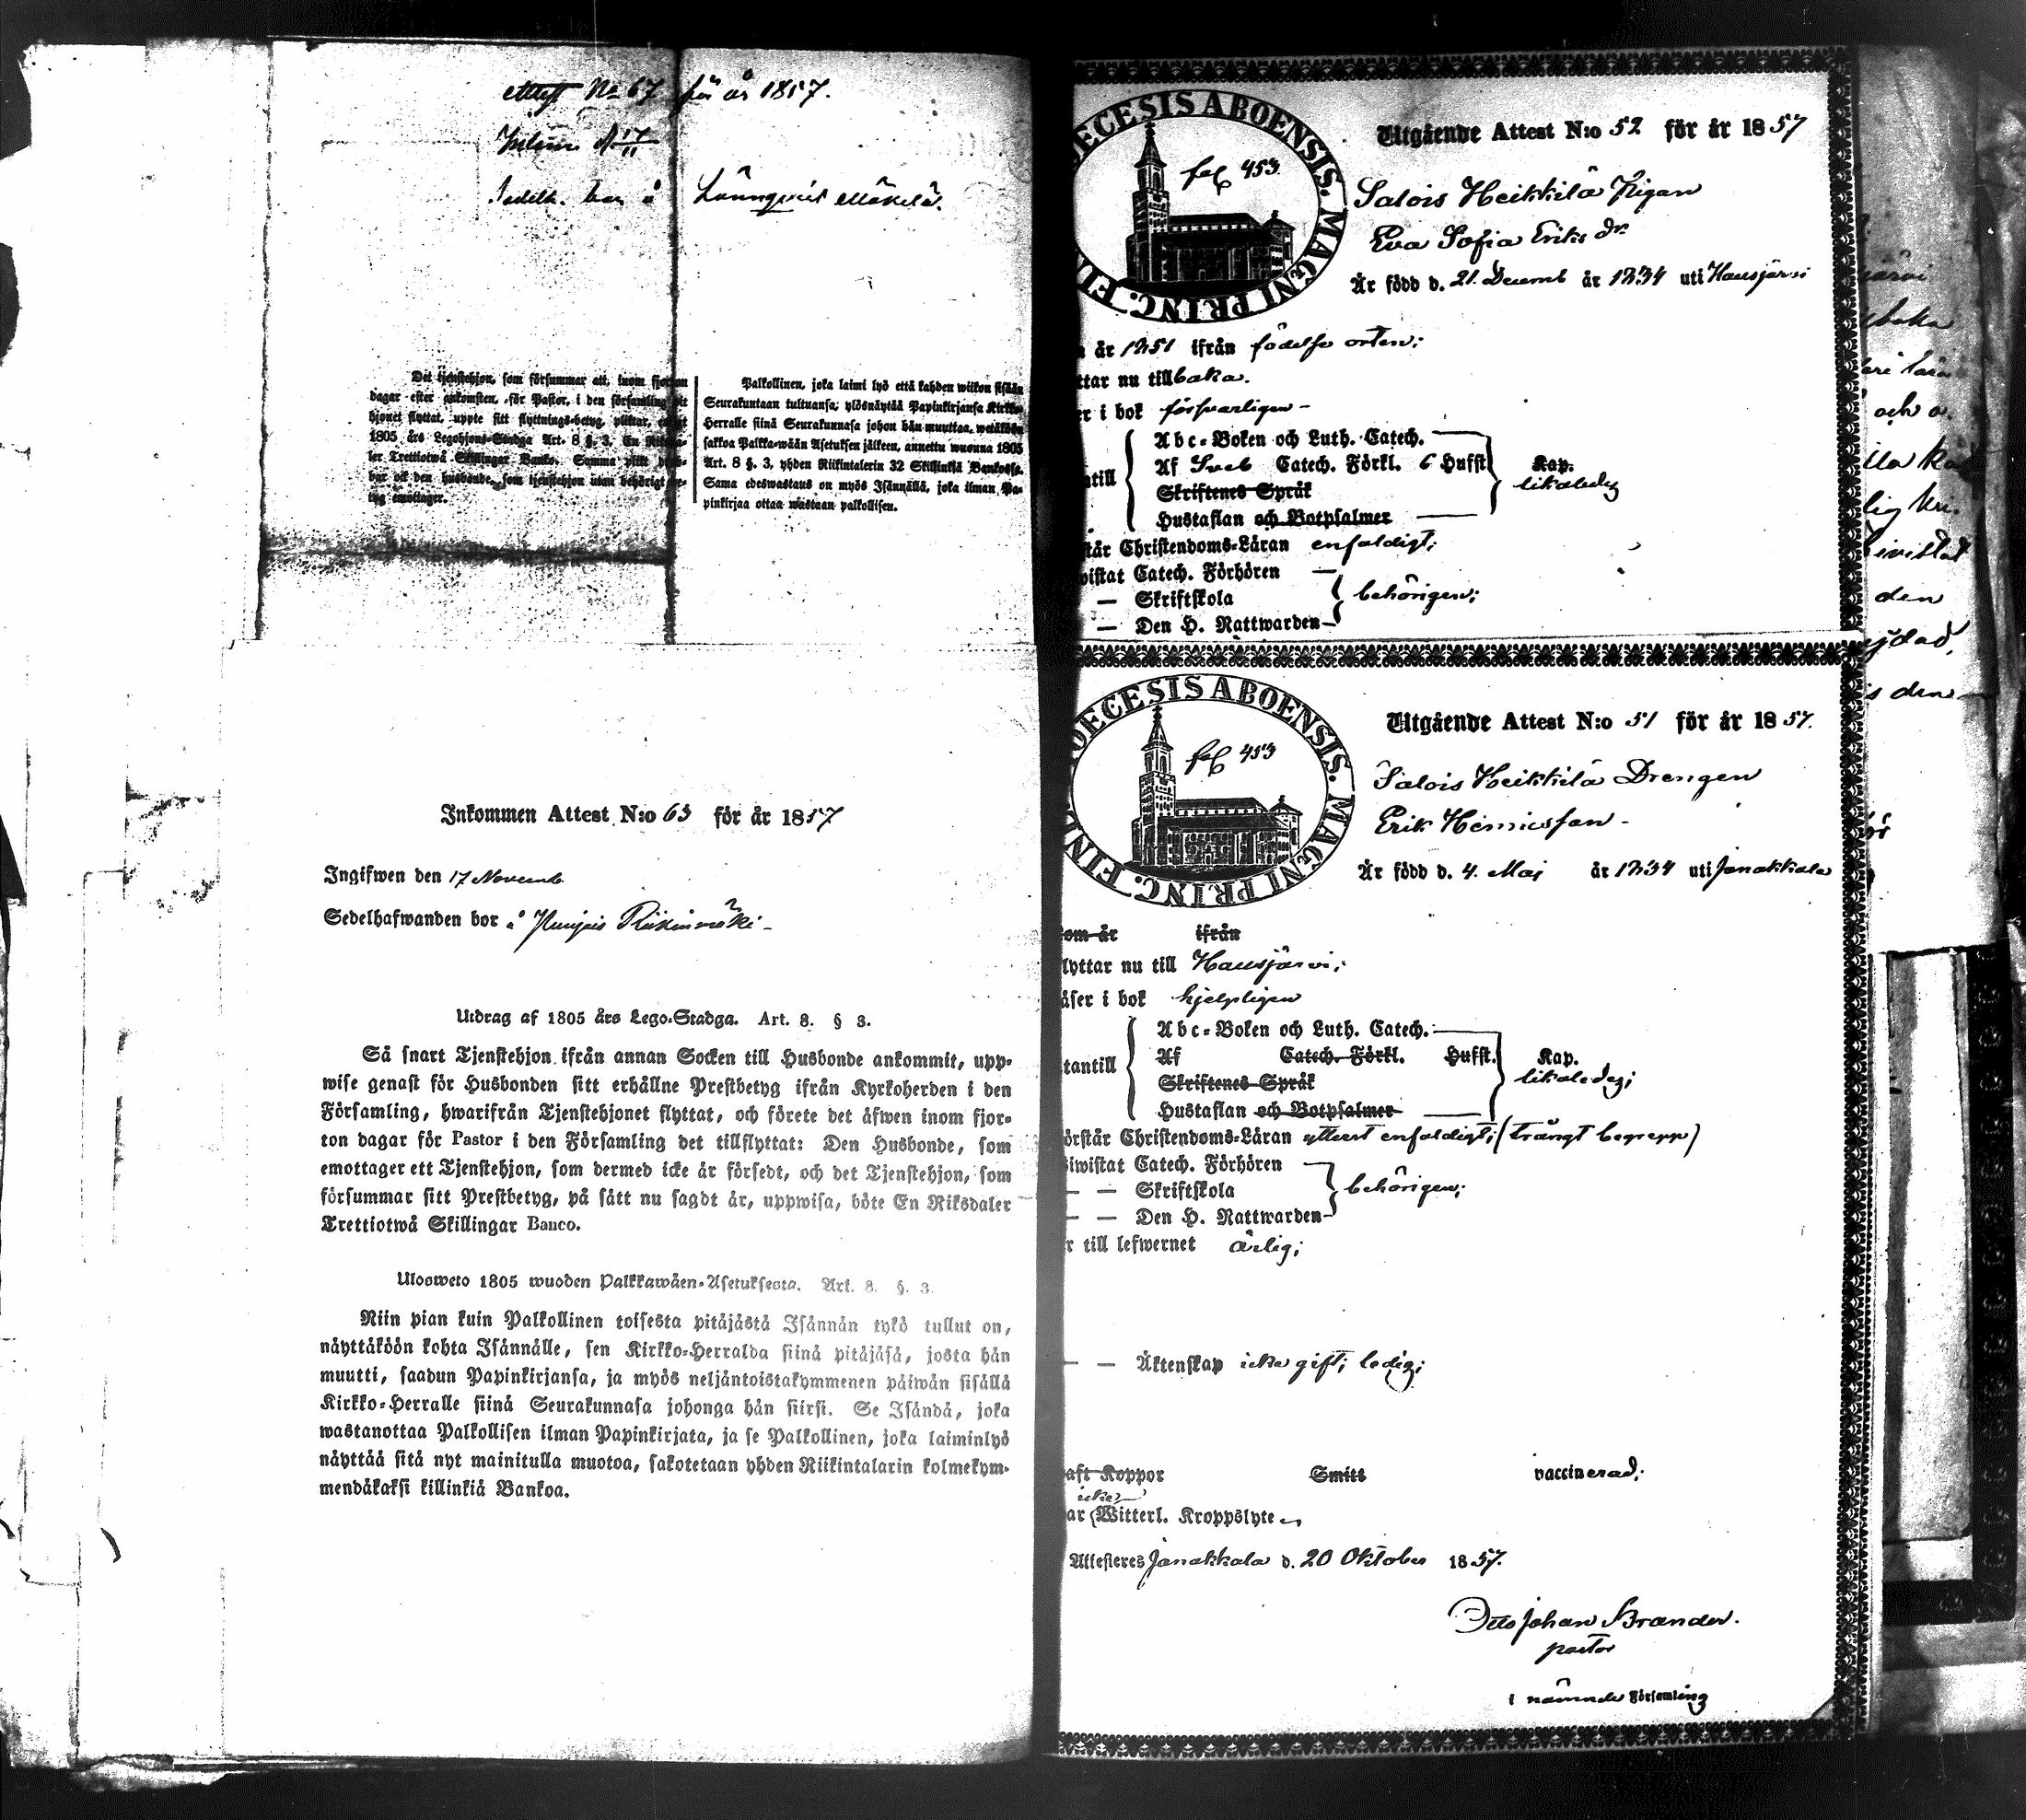 Attest No 67 för år 1857.
Inlemn. d 17/11
Sedelh. bor å Lönnqvist Mäkelä.
Det tjenstehjon, som försummar att, inom fjorton
dagar efter ankomsten, för Pastor, i den församling dit
hjonet flyttat, uppte sitt flyttnings-betyg, pliktar, enligt
1805 års Legohjons-Stadga Art. 8 §. 3, En Riksda-
ler Trettiotwå Skillingar Banko. Samma plikt
bar ock den husbonde, som tjenstehjon utan behörigt be-
tyg emottager.
Palkollinen, joka laimi lyö että kahden wiikon sisään
Seurakuntaan tultuansa, ylösnäytää Papinkirjansa Kirkko-
Herralle siinä Seurakunnasa johon hän muuttaa, wetäköön
sakkoa Palkka-wään Asetuksen jälkeen, annettu wuonna 1805
Art. 8 §. 3, yhden Riikintalerin 32 Skillinkiä Bankossa.
Sama edeswastaus on myös Isännällä, joka ilman Pa-
pinkirjaa ottaa wastaan palkollisen.
Inkommen Attest N:o 63 för år 1857
Ingifwen den 17 Novemb.
Sedelhafwanden bor å Punjois Riikinmäki
Utdrag af 1805 års Lego-Stadga. Art. 8. § 3.
Så snart Tjenstehjon ifrån annan Socken till Husbonde ankommit, upp-
wise genast för Husbonden sitt erhållne Prestbetyg ifrån Kyrkoherden i den
Församling, hwarifrån Tjenstehjonet flyttat, och förete det äfwen inom fjor-
ton dagar för Pastor i den Församling det tillflyttat: Den Husbonde, som
emottager ett Tjenstehjon, som dermed icke är försedt, och det Tjenstehjon, som
försummar sitt Prestbetyg, på sätt nu sagdt är, uppwisa, böte En Riksdaler
Trettiotwå Skillingar Banco.
Ulosweto 1805 wuoden Palkkawäen-Asetuksesta. Art. 8. §. 3.
Niin pian kuin Palkollinen toisesta pitäjästä Isännän tykö tullut on,
näyttäköön kohta Isännälle, sen Kirkko-Herralda siinä pitäjäsä, josta hän
muutti, saadun Papinkirjansa, ja myös neljäntoistakymmenen päiwän sisällä
Kirkko-Herralle siinä Seurakunnasa johonga hän siirsi. Se Isändä, joka
wastanottaa Palkollisen ilman Papinkirjata, ja se Palkollinen, joka laiminlyö
näyttää sitä nyt mainitulla muotoa, sakotetaan yhden Riikintalarin kolmekym-
mendäkaksi killinkiä Bankoa.
OECESIS ABOENSIS. MAGNI PRINC. FIN
fol 453.
Utgående Attest N:o 52 för år 1857
Salois Heikkilä Pigan
Eva Sofia Eriks dr
Är född d. 21. Decemb år 1834 uti Hausjärvi
år 1851 ifrån födelse orten;
ttar nu till baka.
r i bok försvarligen -
Abc-Boken och Luth. Catech.
Af Sveb Catech. Förkl. 6 Hufst.
Kap.
Skriftenes Språk
likaledes
ntill
Hustaflan och Botpsalmer
står Christendoms-Läran enfaldigt;
wistat Catech. Förhören
— Skriftskola behörigen;
— Den H. Nattwarden
OECESIS ABOENSIS. MAGNI PRINC. FIND
fol 453
Utgående Attest N:o 51 för år 1857.
Salois Heikkilä Drengen
Erik Henricsson -
Är född d. 4. Maj år 1834 uti Janakkala
om år ifrån
lyttar nu till Hausjärvi;
äser i bok hjelpligen
Abc-Boken och Luth. Catech.
Af Catech. Förkl. Hufst. Kap.
tantill
Skriftenes Språk likaledes;
Hustaflan och Botpsalmer
örstår Christendoms-Läran ytterst enfaldigt; (trångt begrepp)
iwistat Catech. Förhören
— — Skriftskola behörigen;
— — Den H. Nattwarden
r till lefwernet ärlig;
— — Äktenskap icke gift; ledig;
aft Koppor Smitt vaccinerad;
icke
ar Witterl. Kroppslyte
Attesteres Janakkala d. 20 Oktober 1857.
Otto Johan Brander.
pastor
i nämnde Församling
järvi
baka
och
den